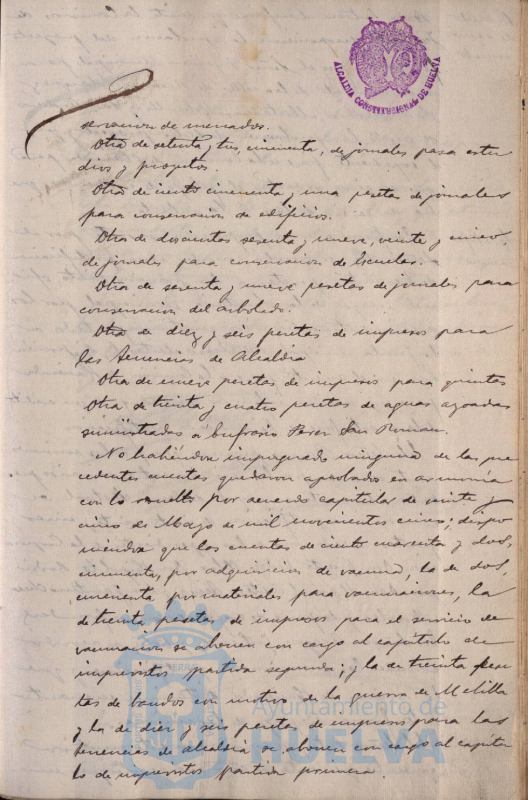 ALCALDIA CONSTITUCIONAL DE HUELVA
servacion de mercados.
Otra de setenta y tres, cincuenta, de jornales para estu
dios y proyectos.
Otra de ciento cincuenta y una pesetas de jornales
para conservacion de edificios.
Otra de doscientas sesenta y nueve, veinte y cinco,
de jornales para conservacion de Escuelas.
Otra de sesenta y nueve pesetas de jornales para
conservacion del arbolado.
Otra de diez y seis pesetas de impresos para
las Tenencias de Alcaldia
Otra de nueve pesetas de impresos para quintas
Otra de treinta y cuatro pesetas de aguas azoadas
suministradas á Eufrasio Perez San Roman.
No habiéndose impugnado ninguna de las pre
cedentes cuentas quedaron aprobadas en armonía
con lo resuelto por acuerdo capitular de veinte y
cinco de Mayo de mil novecientos cinco; dispo
niéndose que las cuentas de ciento cuarenta y dos,
cincuenta, por adquisicion de vacuna, la de dos,
cincuenta por materiales para vacunaciones, la
de treinta pesetas de impresos para el servicio de
vacunacion se abonen con cargo al capitulo de
imprevistos partida segunda; y la de treinta pese
tas de bandos con motivo de la guerra de Melilla
y la de diez y seis pesetas de impresos para las
tenencias de alcaldia se abonen con cargo al capitu
lo de imprevistos partida primera.
Ayuntamiento de
HUELVA